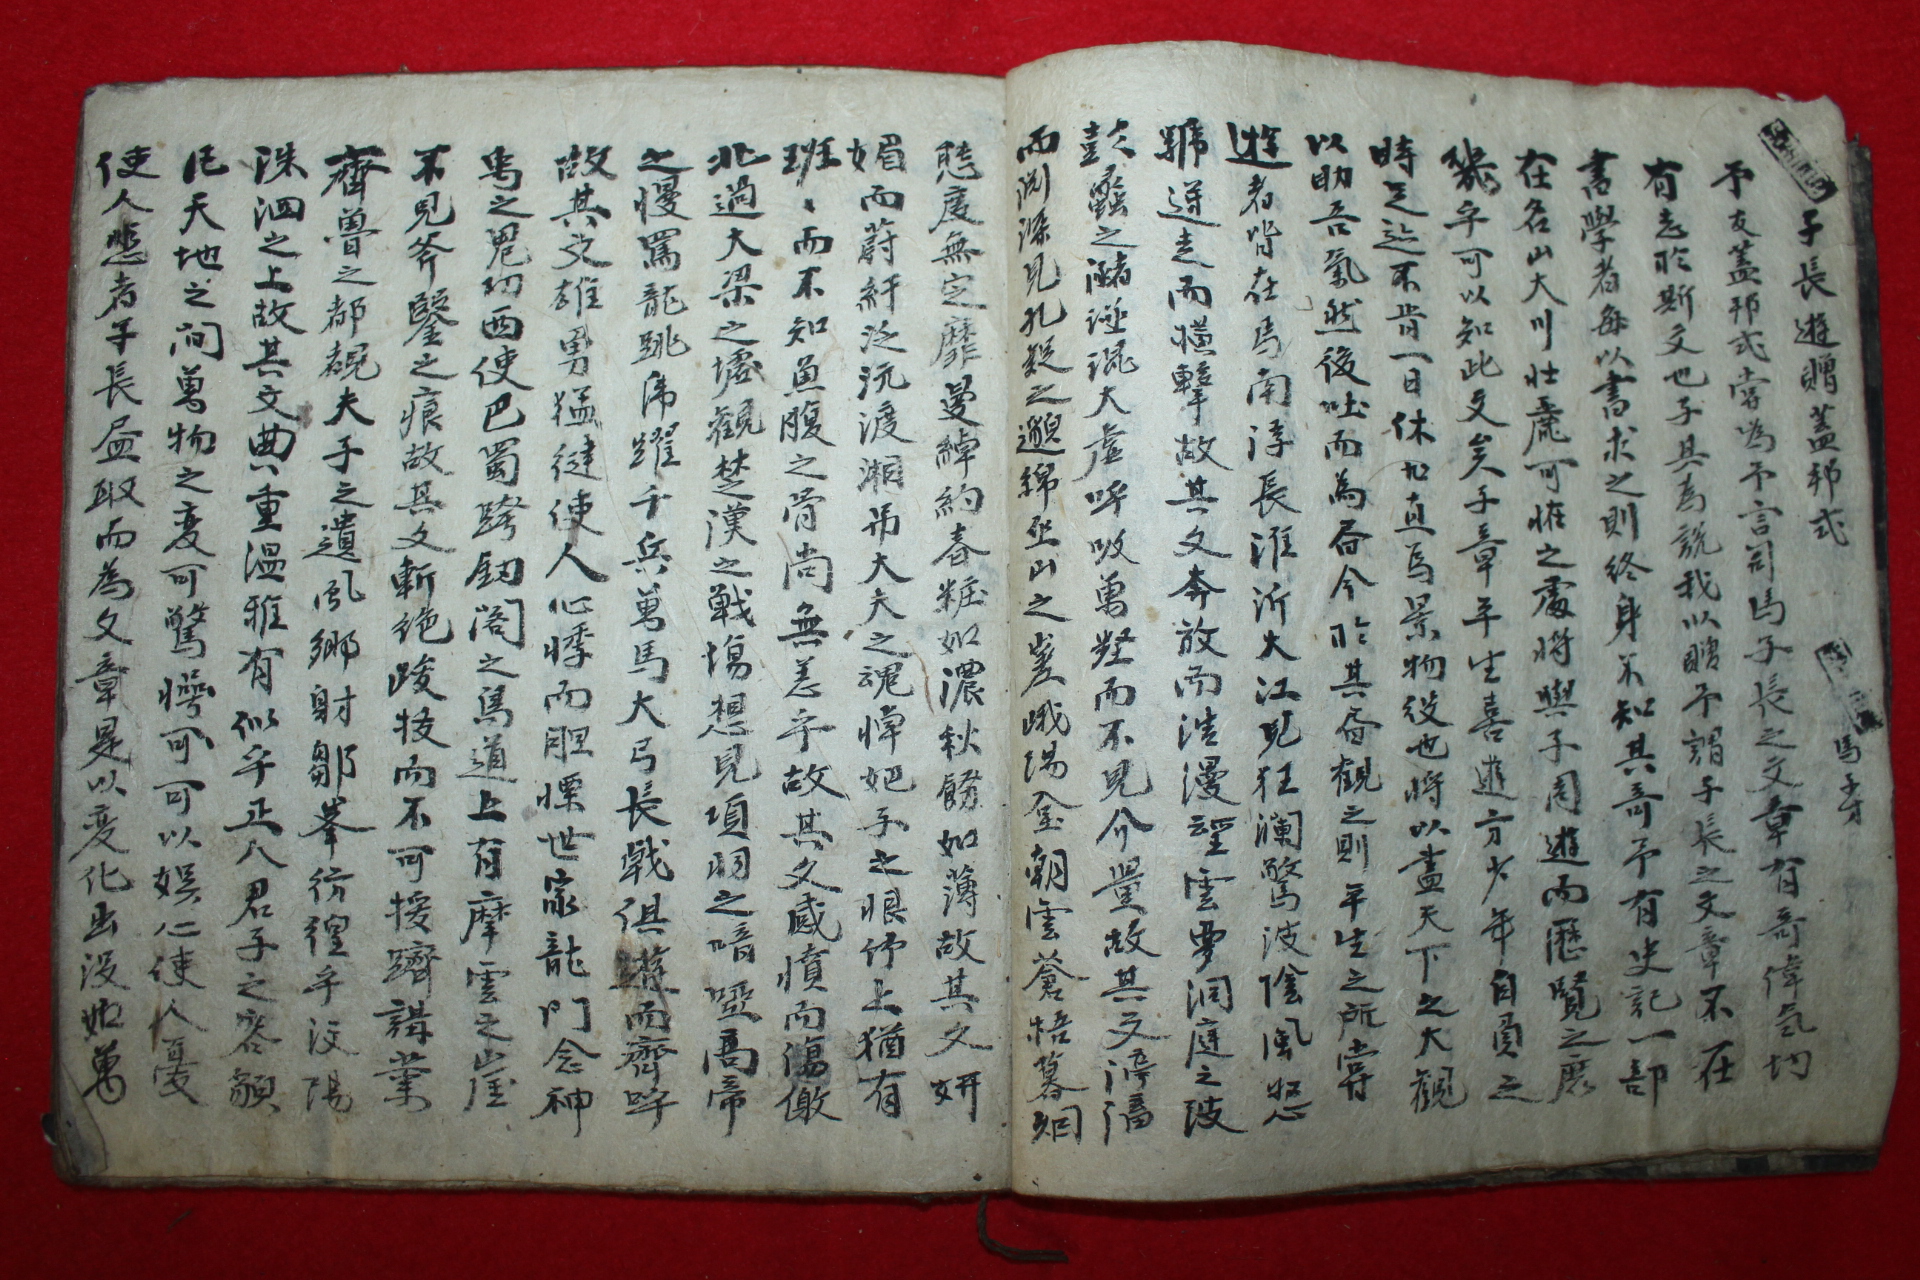 子長遊贈盖邦式 馬子才
予友盖邦式嘗為予言司馬子長之文章有奇偉氣切
有志於斯文也子其為說我以贈予謂子長之文章不在
書學者每以書求之則終身不知其奇予有史記一部
在名山大川壯麗可恠之處將與子周遊而歷覽之庶
幾乎可以知此文矣子章平生喜遊方少年自負之
時足迹不肯一日休也直為景物役也將以盡天下之大觀
以助吾氣然後吐而為書今於其書觀之則平生之所嘗
遊者皆在焉南浮長淮泝大江見狂瀾驚波陰風怒
號逆走而橫擊故其文奔放而浩漫望雲夢洞庭之陂
彭蠡之瀦涵混大虛呼吸萬壑而不見介量故其文渟滀
而淵深見九疑之邈綿巫山之嵳峩陽臺朝雲蒼梧暮烟
態度無定靡曼綽約春粧如濃秋餙如薄故其文姸
媚而蔚紆泛沅渡湘吊大夫之魂悼妃子之恨竹上猶有
斑、而不知魚腹之骨尚無恙乎故其文感憤而傷激
北過大梁之墟觀楚漢之戰塲想見項羽之喑啞高帝
之慢罵龍跳虎躍千兵萬馬大弓長戟俱遊而齊呼
故其文雄勇猛徤使人心悸而胆慄世家龍門念神
禹之鬼功西使巴蜀跨釰閣之鳥道上有摩雲之崖
不見斧鑿之痕故其文斬絶峻拔而不可援躋講業
齊魯之都覩夫子之遺風鄉射鄒嶧彷徨乎汶陽
洙泗之上故其文典重溫雅有似乎正人君子之容顔
凡天地之間萬物之変可驚愕可可以娯心使人憂
使人悲者子長盡取而為文章是以変化出沒如萬